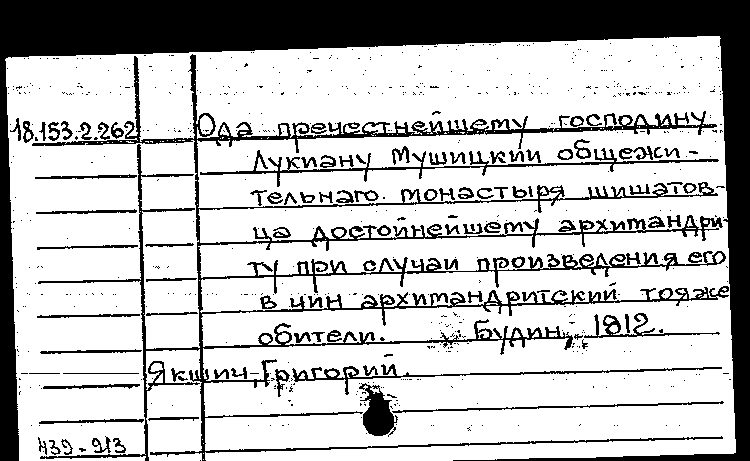 18.153.2.262 Ода пречестнейшему господину
Лукиану Мушицкии общежи-
тельнаго монастыря шишатов-
ца достойнейшему архимандри-
ту при случаи произведения его
в чин архимандритский тояже
обители. Будин, 1812.
Якшич, Григорий.
439-913